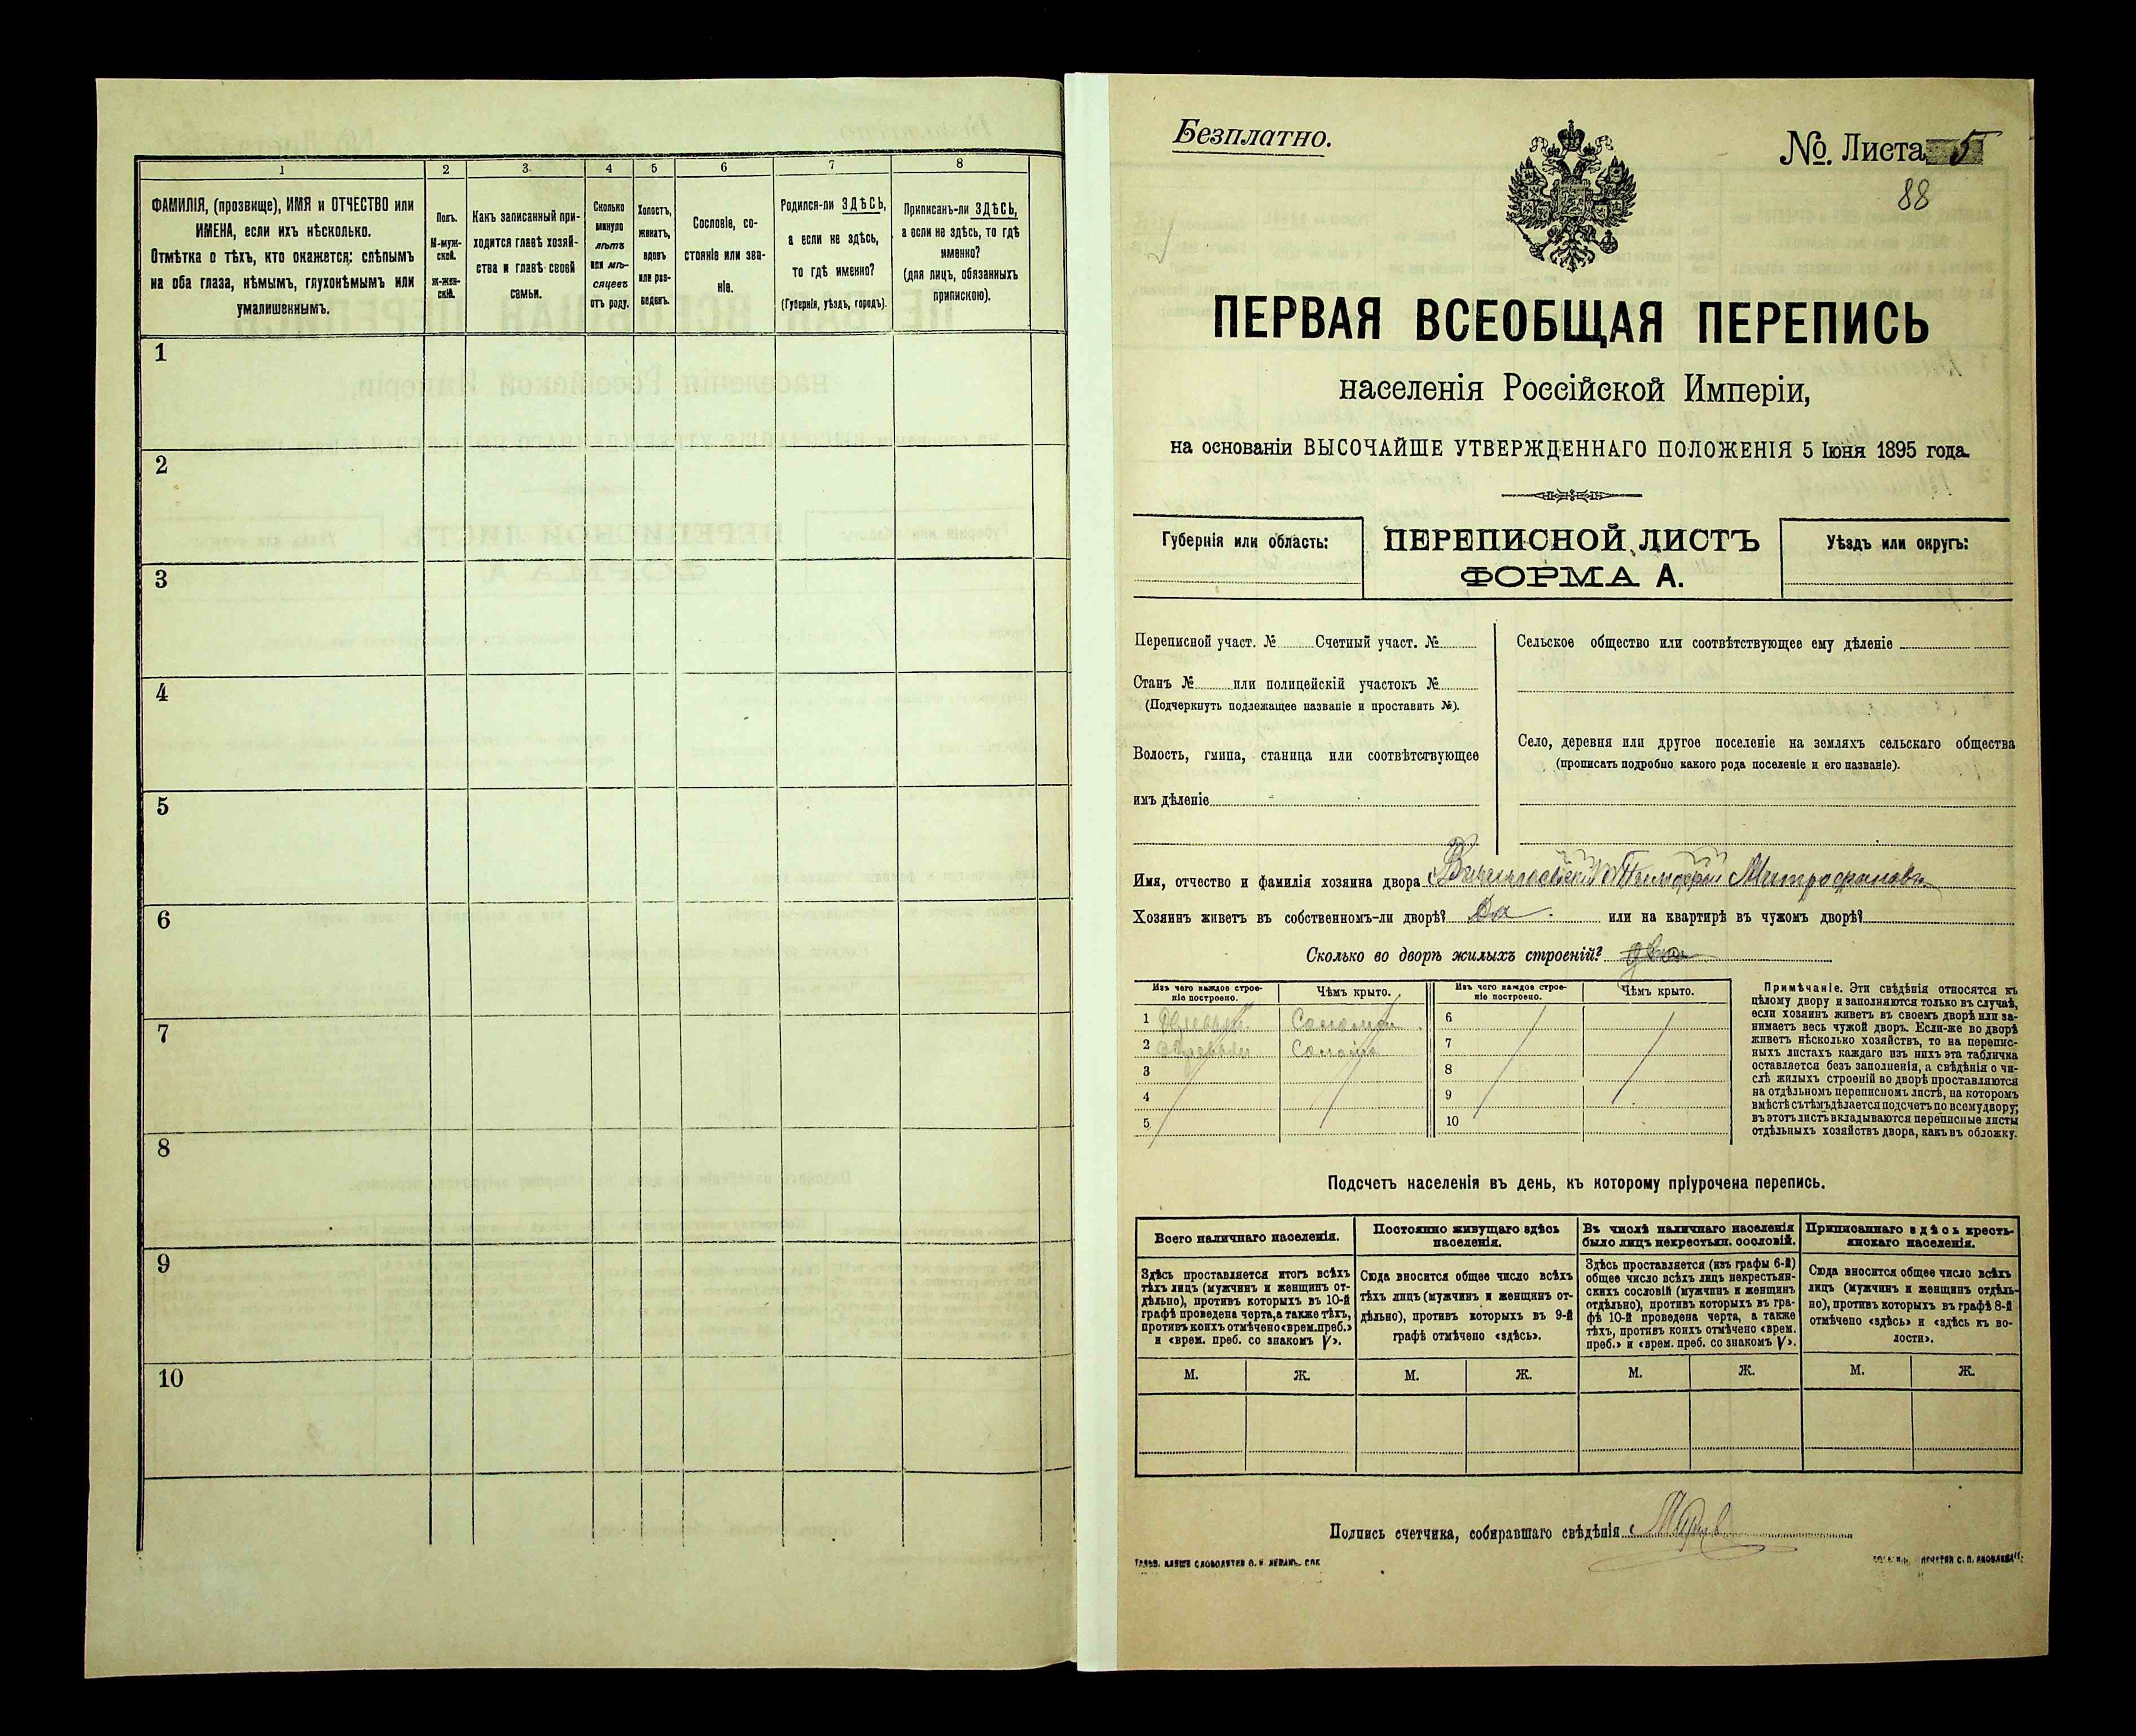 1
2
3
4
5
6
7
8
ФАМИЛІЯ, (прозвище), ИМЯ и ОТЧЕСТВО или
ИМЕНА, если ихъ нѣсколько.
Отмѣтка о тѣхъ, кто окажется: слѣпымъ
на оба глаза, нѣмымъ, глухонѣмымъ или
умалишеннымъ.
Полъ.
М-муж-
ской.
Ж-жен-
скій.
Какъ записанный при-
ходится главѣ хозяй-
ства и главѣ своей
семьи.
Сколько
минуло
лѣтъ
или мѣ-
сяцевъ
отъ роду.
Холостъ,
женатъ,
вдовъ
или раз-
веденъ.
Сословіе, со-
стояніе или зва-
ніе.
Родился-ли ЗДѢСЬ,
а если не здѣсь,
то гдѣ именно?
(Губернія, уѣздъ, городъ).
Приписанъ-ли ЗДѢСЬ,
а если не здѣсь, то гдѣ
именно?
(для лицъ, обязанныхъ
припискою).
1
2
3
4
5
6
7
8
9
10
Безплатно.
№. Листа 5
88
ПЕРВАЯ ВСЕОБЩАЯ ПЕРЕПИСЬ
населенія Россійской Имперіи,
на основаніи ВЫСОЧАЙШЕ УТВЕРЖДЕННАГО ПОЛОЖЕНІЯ 5 Іюня 1895 года.
Губернія или область:
ПЕРЕПИСНОЙ ЛИСТЪ
ФОРМА А.
Уѣздъ или округъ:
Переписной участ. № Счетный участ. №
Станъ № или полицейскій участокъ №
(Подчеркнуть подлежащее названіе и проставить №).
Волость, гмина, станица или соотвѣтствующее
имъ дѣленіе
Сельское общество или соотвѣтствующее ему дѣленіе
Село, деревня или другое поселеніе на земляхъ сельскаго общества
(прописать подробно какого рода поселеніе и его названіе).
Имя, отчество и фамилія хозяина двора Тимофей Митрофановъ
Хозяинъ живетъ въ собственномъ-ли дворѣ? Да. или на квартирѣ въ чужомъ дворѣ?
Сколько во дворѣ жилыхъ строеній? два
Изъ чего каждое строе-
ніе построено.
Чѣмъ крыто.
Изъ чего каждое строе-
ніе построено.
Чѣмъ крыто.
1 Соломой
2 Солома
3
4
5
6
7
8
9
10
Примѣчаніе. Эти свѣдѣнія относятся къ
цѣлому двору и заполняются только въ случаѣ,
если хозяинъ живетъ въ своемъ дворѣ или за-
нимаетъ весь чужой дворъ. Если-же во дворѣ
живетъ нѣсколько хозяйствъ, то на перепис-
ныхъ листахъ каждаго изъ нихъ эта табличка
оставляется безъ заполненія, а свѣдѣнія о чи-
слѣ жилыхъ строеній во дворѣ проставляются
на отдѣльномъ переписномъ листѣ, на которомъ
вмѣстѣ съ тѣмъ дѣлается подсчетъ по всему двору;
въ этотъ листъ вкладываются переписные листы
отдѣльныхъ хозяйствъ двора, какъ въ обложку.
Подсчетъ населенія въ день, къ которому пріурочена перепись.
Всего наличнаго населенія.
Постоянно живущаго здѣсь
населенія.
Въ числѣ наличнаго населенія
было лицъ некрестьян. сословій.
Приписаннаго здѣсь кресть-
янскаго населенія.
Здѣсь проставляется итогъ всѣхъ
тѣхъ лицъ (мужчинъ и женщинъ от-
дѣльно), противъ которыхъ въ 10-й
графѣ проведена черта, а также тѣхъ,
противъ коихъ отмѣчено «врем. преб.»
и «врем. преб. со знакомъ V».
Сюда вносится общее число всѣхъ
тѣхъ лицъ (мужчинъ и женщинъ от-
дѣльно), противъ которыхъ въ 9-й
графѣ отмѣчено «здѣсь».
Здѣсь проставляется (изъ графы 6-й)
общее число всѣхъ лицъ некрестьян-
скихъ сословій (мужчинъ и женщинъ
отдѣльно), противъ которыхъ въ гра-
фѣ 10-й проведена черта, а также
тѣхъ, противъ коихъ отмѣчено «врем.
преб.» и «врем. преб. со знакомъ V».
Сюда вносится общее число всѣхъ
лицъ (мужчинъ и женщинъ отдѣль-
но), противъ которыхъ въ графѣ 8-й
отмѣчено «здѣсь» и «здѣсь къ во-
лости».
М. Ж. М. Ж. М. Ж. М. Ж.
Подпись счетчика, собиравшаго свѣдѣнія